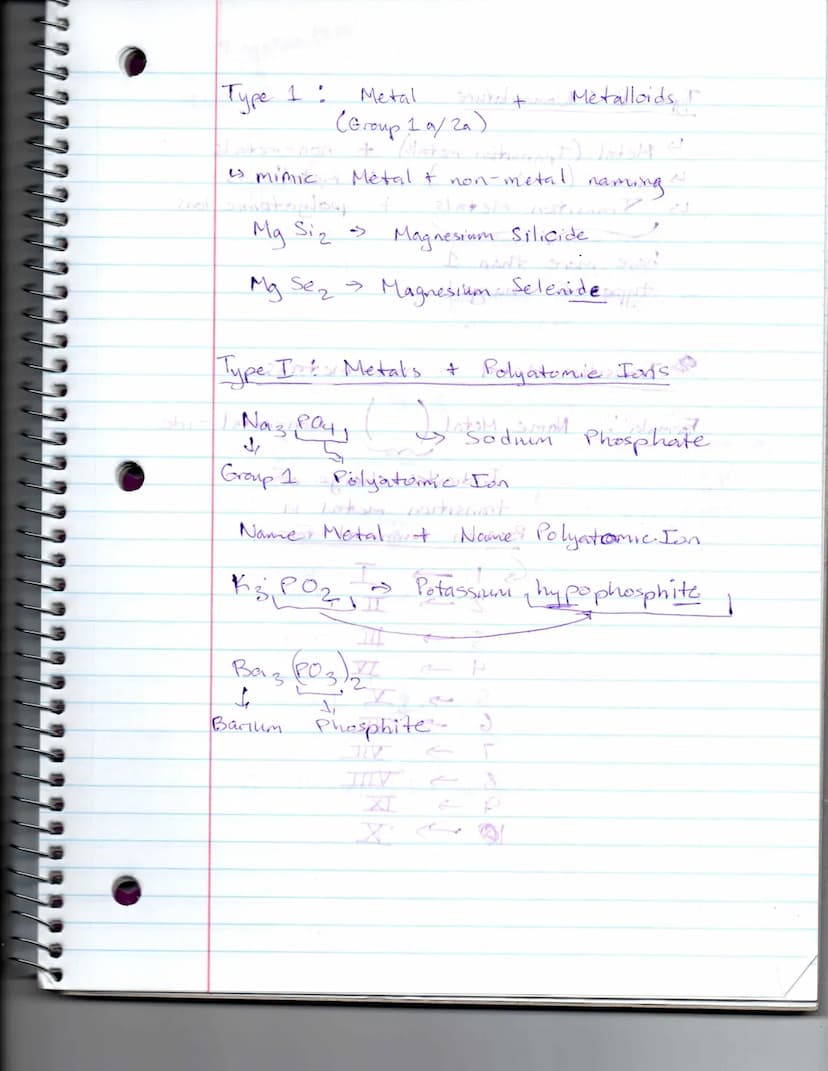 Type 1 : Metal + Metalloids
(Group 1a/2a)
↳ mimic Metal + non-metal naming
MgSi₂ → Magnesium Silicide
MgSe₂ → Magnesium Selenide
Type I : Metals + Polyatomic Ions
Na₃PO₄ ( ) → Sodium Phosphate
Group 1 Polyatomic Ion
Name Metal + Name Polyatomic Ion
K₃PO₂ → Potassium hypophosphite
Ba₃(PO₃)₂
Barium Phosphite